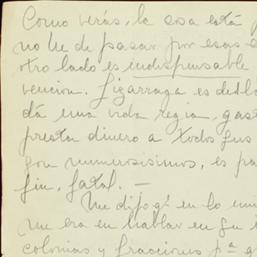 Como verás, la cosa está p
no he de pasar por esas c
otro lado es indispensable
vencion. Lizarraga es desbo
dá una vida regia, gast
presta dinero a todos sus
son numerosisimos, es pa
fin, fatal. —
Me dijo qe en lo um
me era en hablar en su i
colonias y fracciones pa q